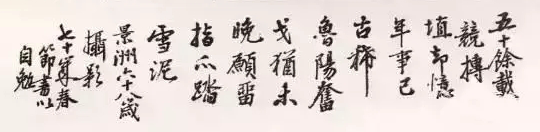 五十餘載
競摶
埴却憶
年事已
古稀
魯陽奮
戈猶未
晚願留
指爪踏
雪泥
景洲六十八歲
攝影
七十年春
節書以
自勉